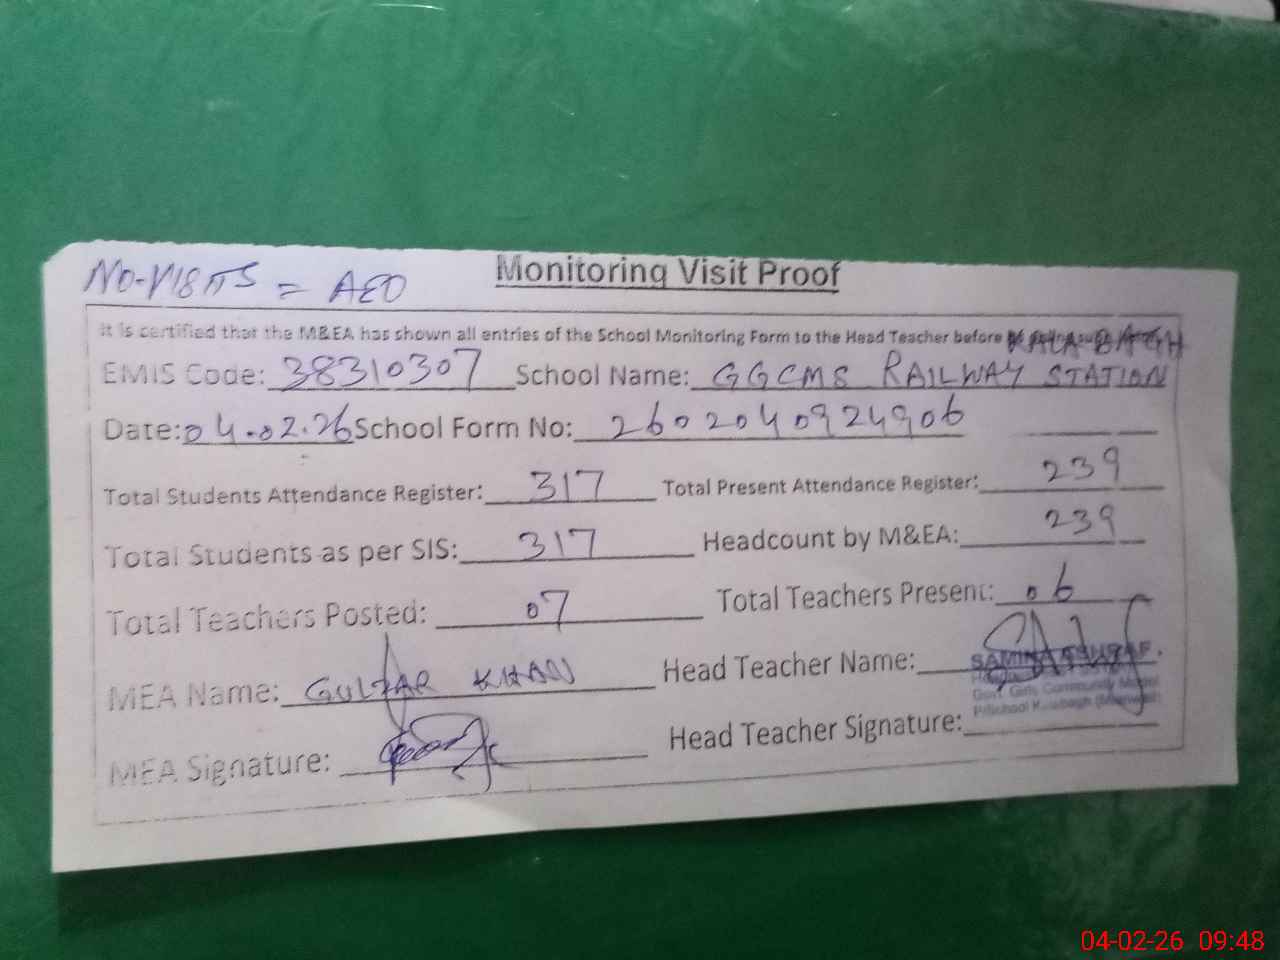 NO-VISITS = AEO
Monitoring Visit Proof
It is certified that the M&EA has shown all entries of the School Monitoring Form to the Head Teacher before KALABAGH
EMIS Code: 38310307 School Name: GGCMS RAILWAY STATION
Date: 04.02.26 School Form No: 2602040924906
Total Students Attendance Register: 317 Total Present Attendance Register: 239
Total Students as per SIS: 317 Headcount by M&EA: 239
Total Teachers Posted: 07 Total Teachers Present: 06
MEA Name: GULZAR KHAN Head Teacher Name:
SAMINA ASHRAF
Govt Girls Community Model
P/School Kalabagh (Mianwali)
MEA Signature: Head Teacher Signature:
04-02-26 09:48